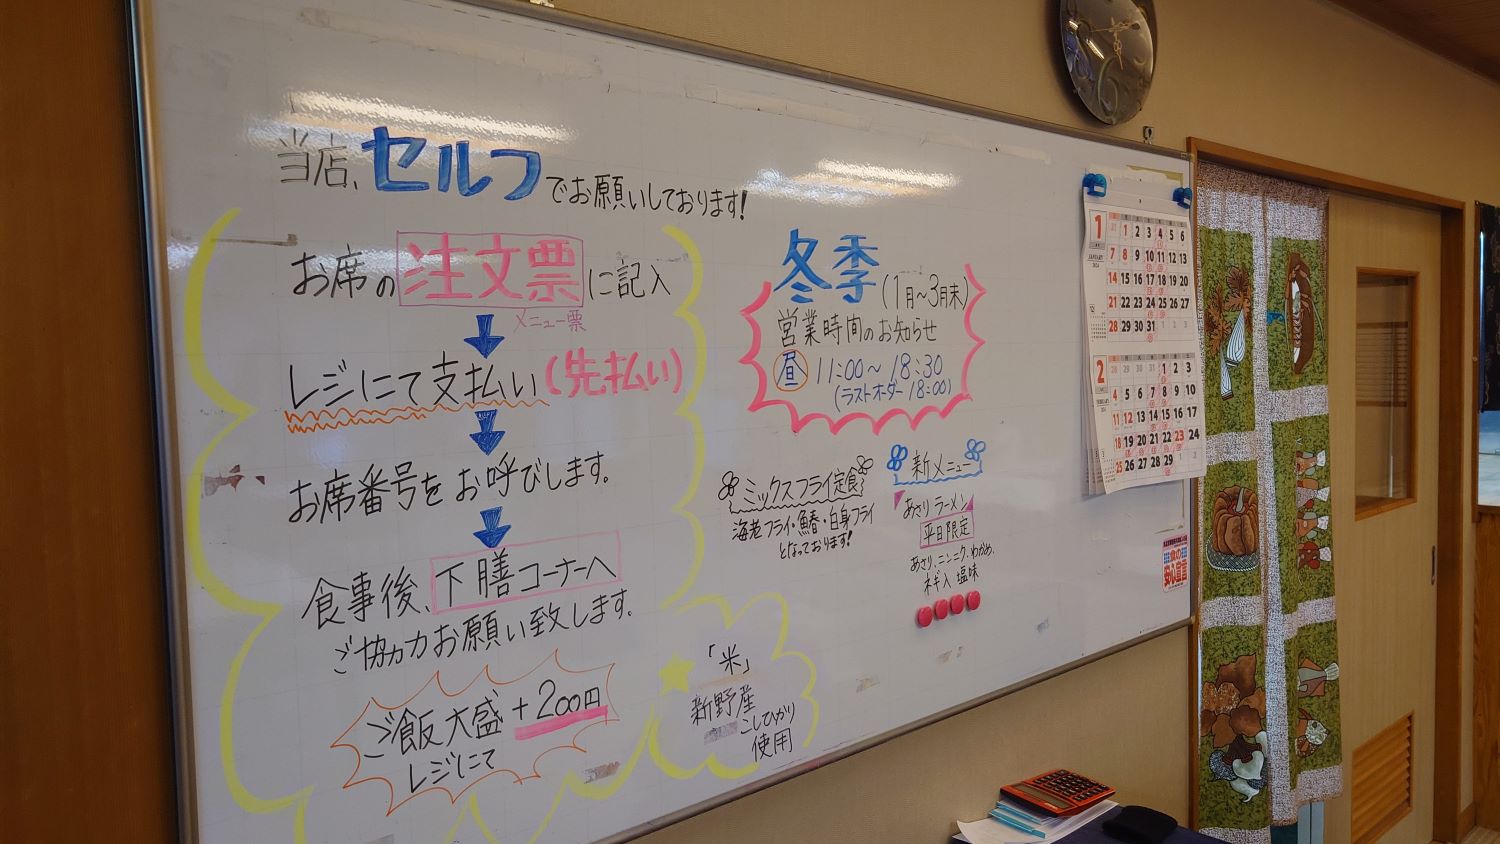 当店、セルフでお願いしております!
お席の注文票に記入
メニュー票
レジにて支払い(先払い)
お席番号をお呼びします。
食事後、下膳コーナーへ
ご協力お願い致します。
ご飯大盛+200円
レジにて
「米」
新野産
こしひかり
使用
冬季(1月~3月末)
営業時間のお知らせ
昼 11:00~18:30
(ラストオーダー18:00)
ミックスフライ定食
海老フライ・鯵・白身フライ
となっております!
新メニュー
あさりラーメン
平日限定
あさり、ニンニク、わかめ、
ネギ入 塩味
1
JANUARY
2024
31 1 2 3 4 5 6
7 8 9 10 11 12 13
14 15 16 17 18 19 20
21 22 23 24 25 26 27
28 29 30 31 1 2 3
2
FEBRUARY
2024
28 29 30 31 1 2 3
4 5 6 7 8 9 10
11 12 13 14 15 16 17
18 19 20 21 22 23 24
25 26 27 28 29
食の
安心宣言